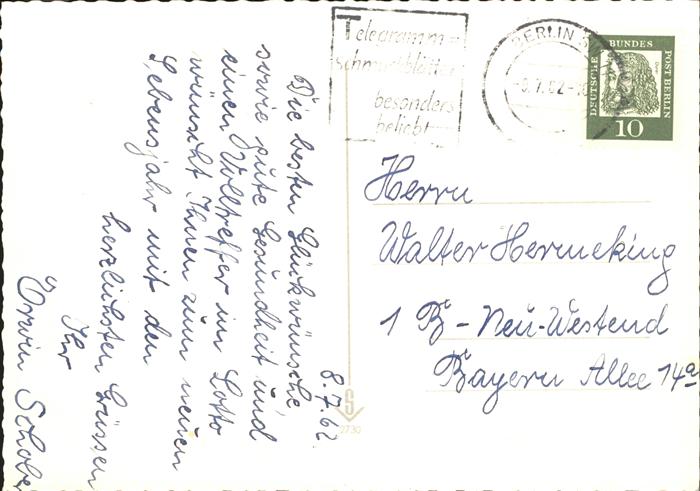 Telegramm-
schmuckblätter
besonders
beliebt
BERLIN
-8.7.62-
DEUTSCHE BUNDES POST BERLIN
10
8.7.62
Die besten Glückwünsche
sowie gute Gesundheit und
einen Volltreffer im Lotto
wünscht Ihnen zum neuen
Lebensjahr mit den
herzlichsten Grüssen
Ihr
Erwin Schober
Herrn
Walter Hermeking
1 B - Neu-Westend
Bayern Allee 14a
S
2730